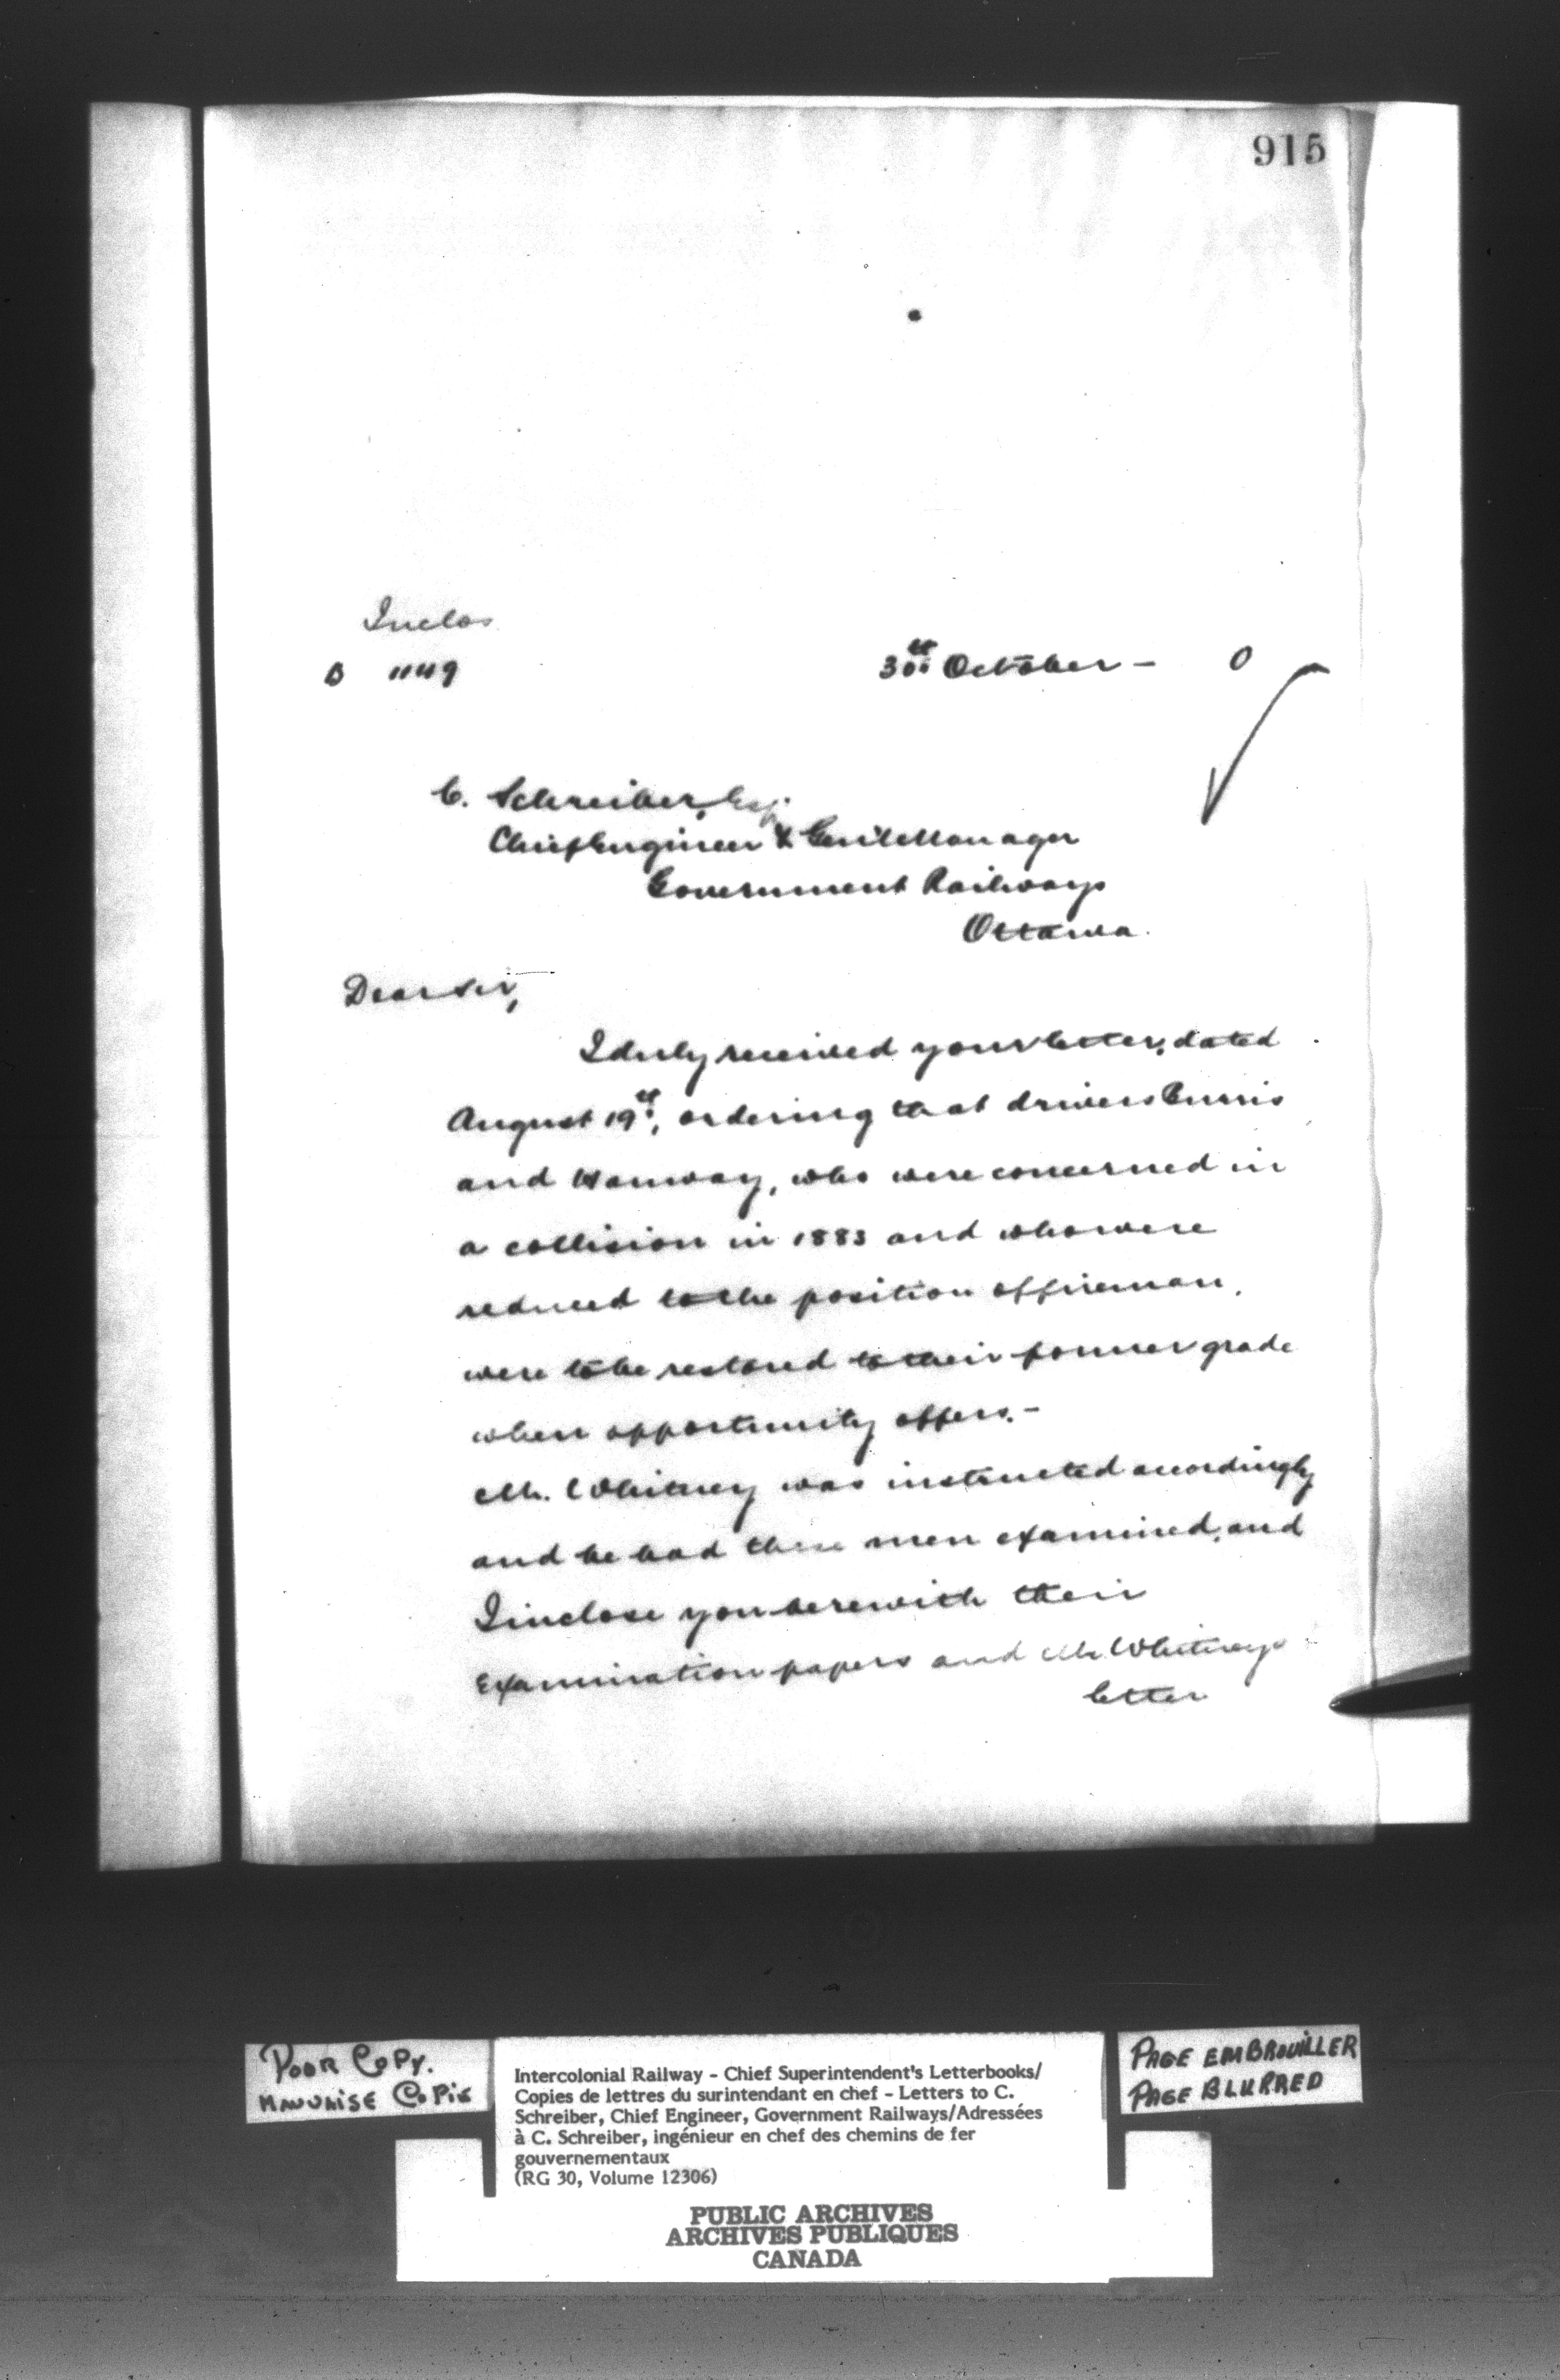 915
Inclos
B 1149
30th October - 0
C. Schreiber, Esq.
Chief Engineer & Gen'l Manager
Government Railways
Ottawa.
Dear Sir,
I duly received your letter, dated
August 19th, ordering that drivers Currie
and Hanway, who were concerned in
a collision in 1883 and who were
reduced to the position of fireman,
were to be restored to their former grade
when opportunity offers.-
Mr. Whitney was instructed accordingly
and he had these men examined, and
I inclose you herewith their
Examination papers and Mr. Whitneys
letter
POOR COPY.
MAUVAISE COPIE
Intercolonial Railway - Chief Superintendent's Letterbooks/
Copies de lettres du surintendant en chef - Letters to C.
Schreiber, Chief Engineer, Government Railways/Adressées
à C. Schreiber, ingénieur en chef des chemins de fer
gouvernementaux
(RG 30, Volume 12306)
PAGE EMBROUILLER
PAGE BLURRED
PUBLIC ARCHIVES
ARCHIVES PUBLIQUES
CANADA